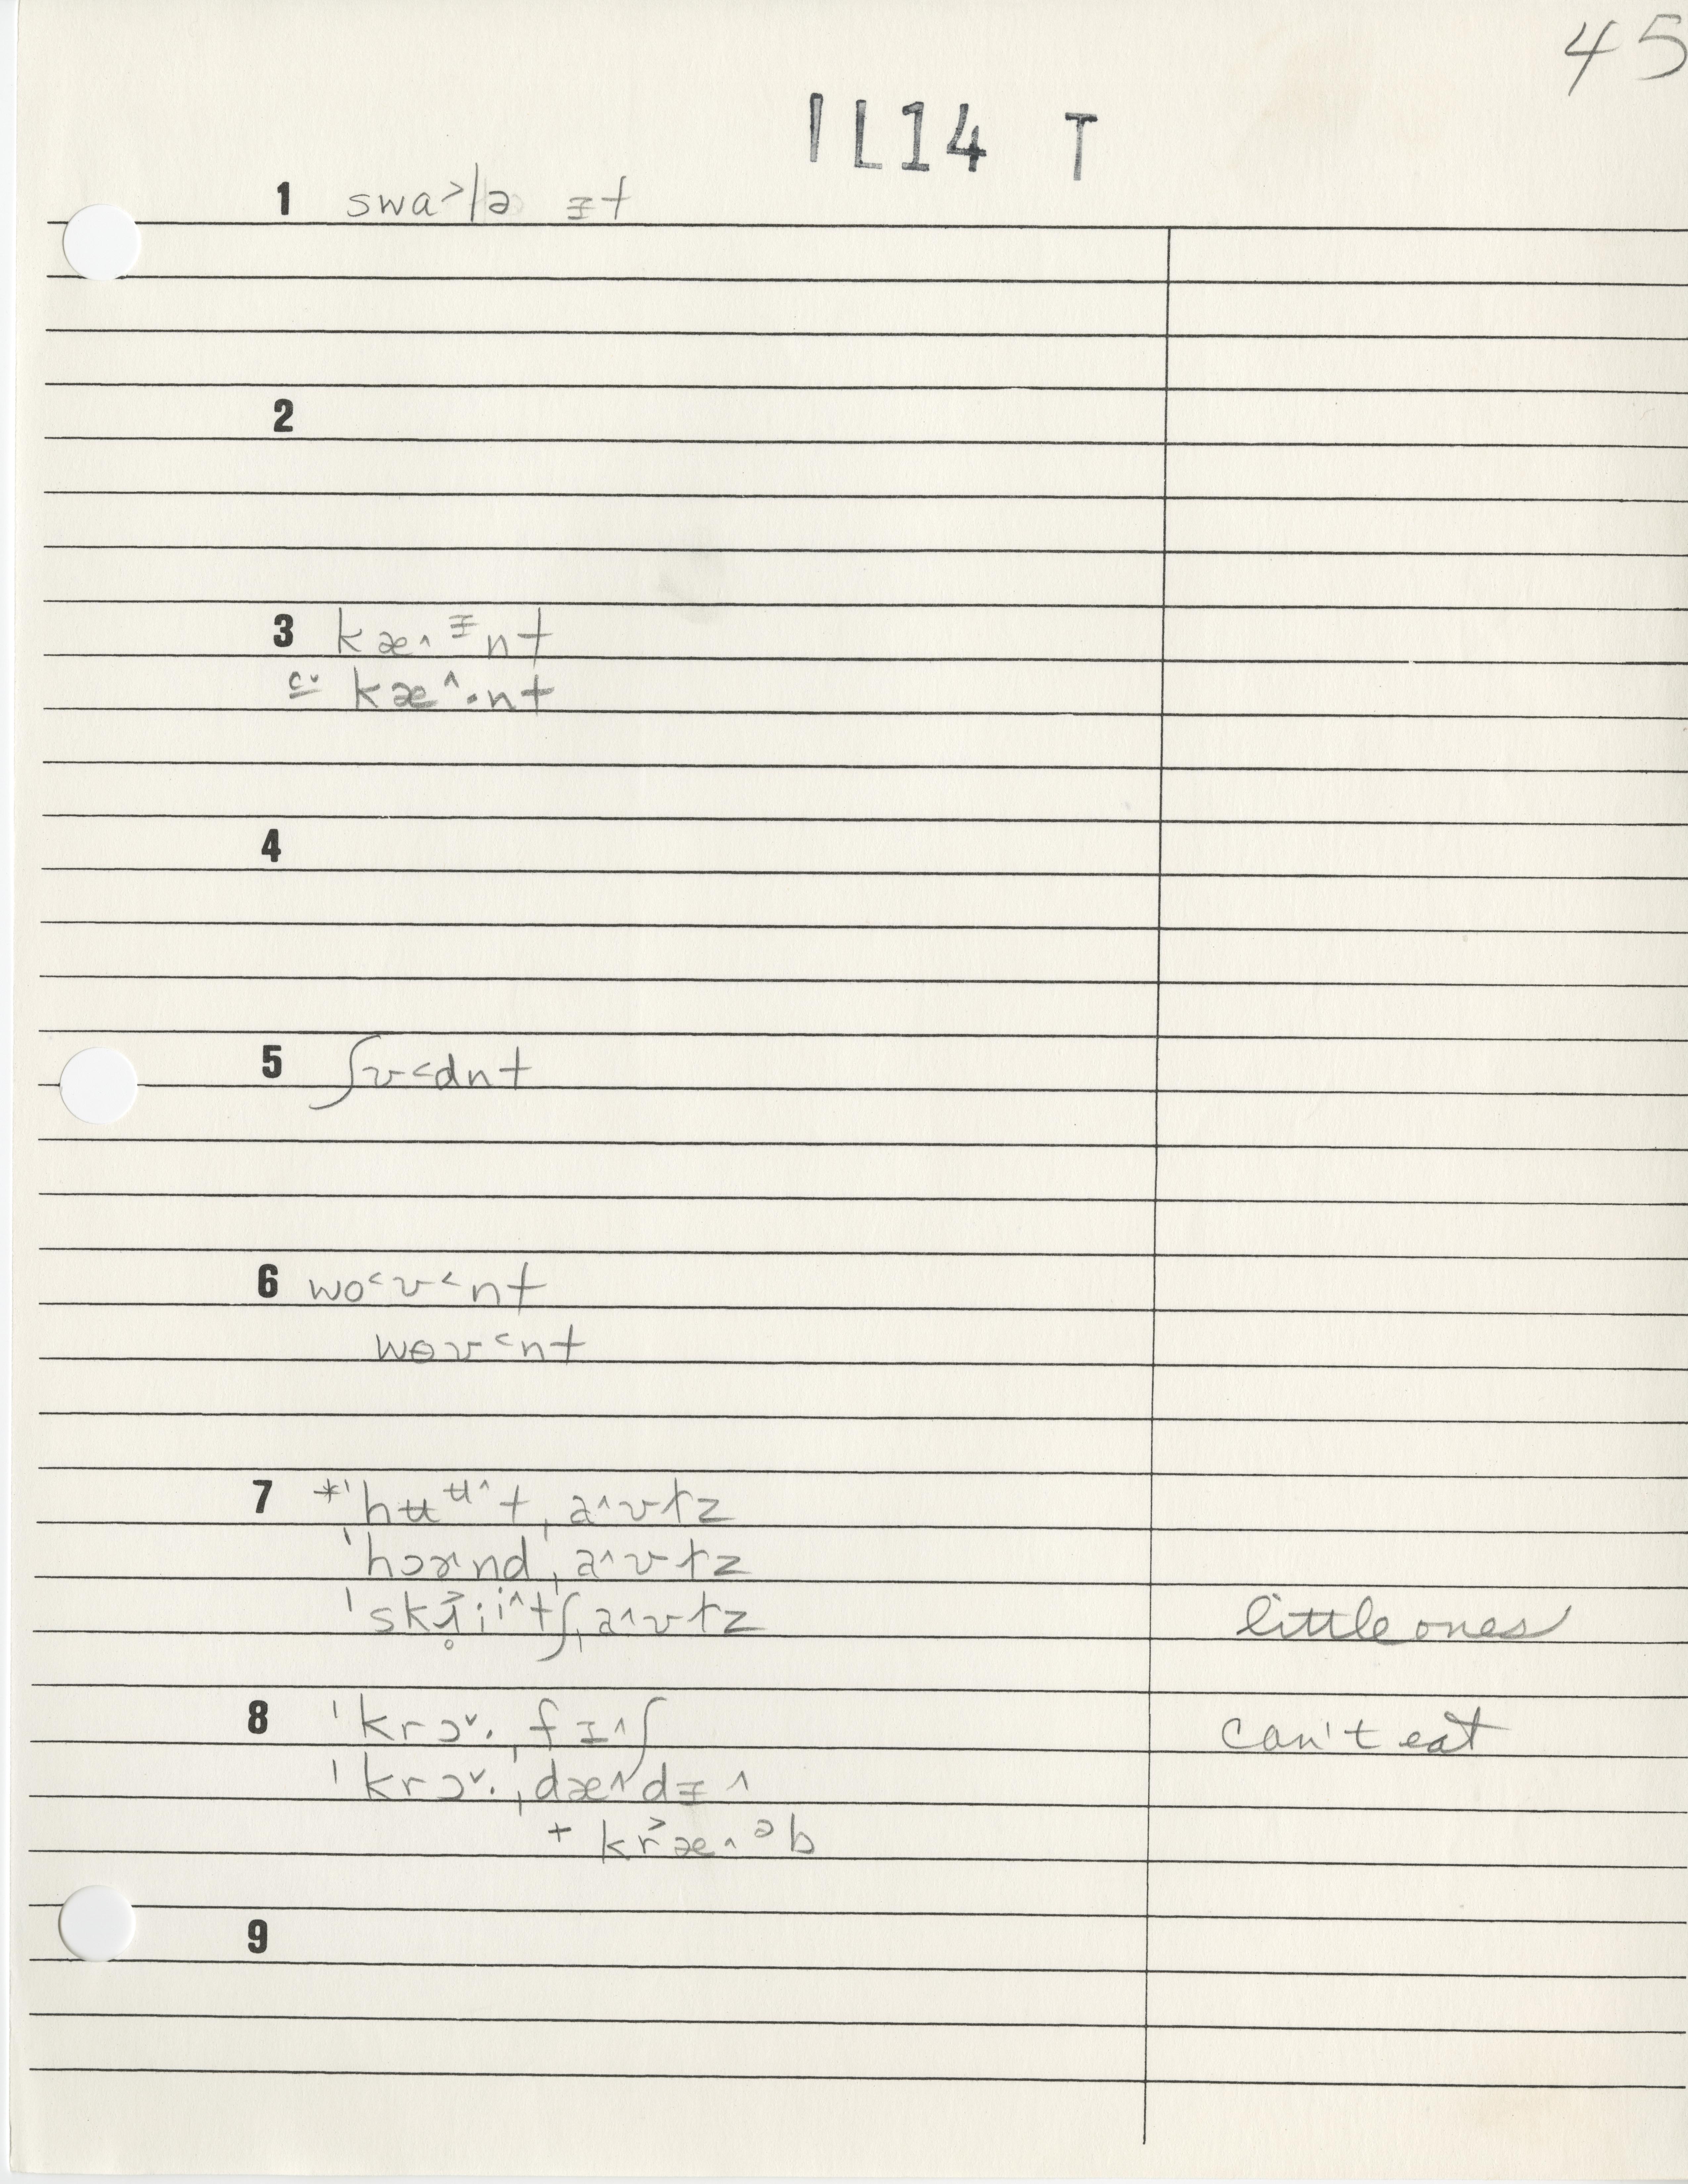 45
IL14 T
1 swa˃lə ᵻt
2
3 kæ˄ᵻnt
c. kæ˄·nt
4
5 ʃʊ˂dnt
6 wo˂ʊ˂nt
wɵʊ˂nt
7 *ˈhʉʉ˄tˌa˄ʊɫz
ˈhɔɚndˌa˄ʊɫz
little ones
8 ˈkrɔ˅·ˌfɪ˄ʃ can't eat
ˈkrɔ˅·ˌdæ˄dᵻ˄
+ kr˃æ˄ᵊb
9